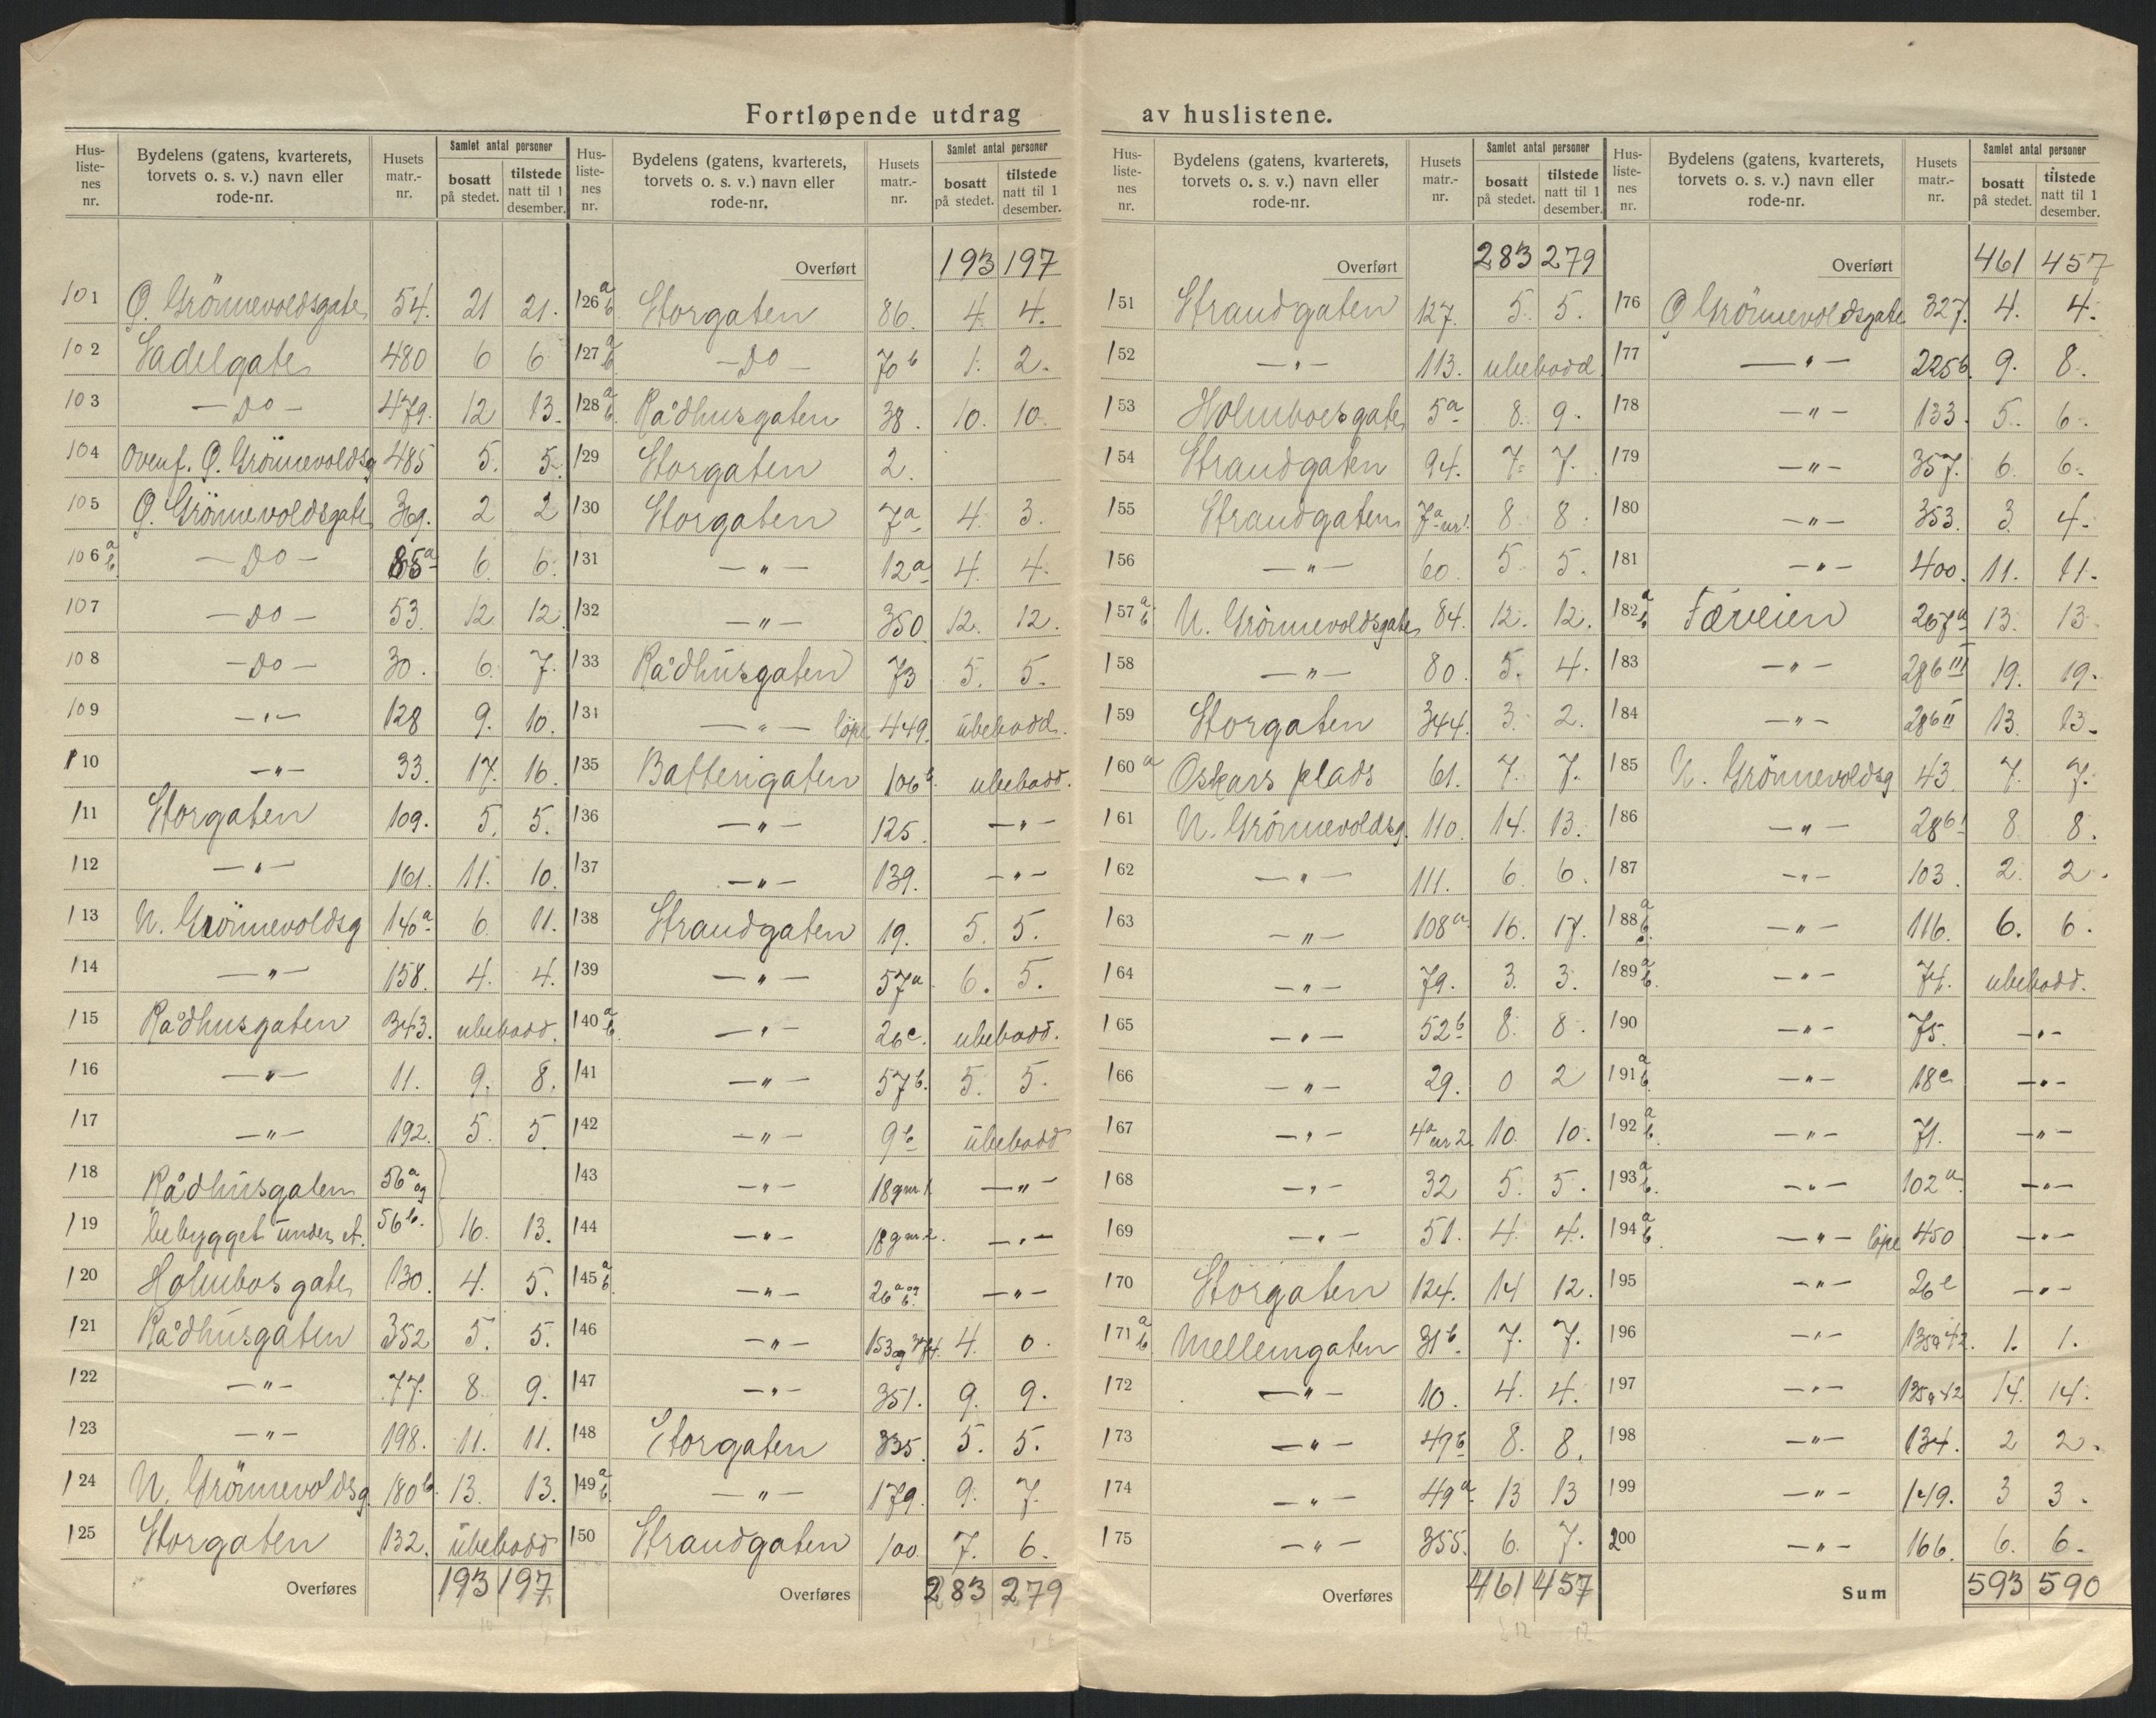 Fortløpende utdrag av huslistene.
Hus-liste-nes nr. | Bydelens (gatens, kvarterets, torvets o. s. v.) navn eller rode-nr. | Husets matr.-nr. | Samlet antal personer | bosatt på stedet. | tilstede natt til 1 desember.
101 Ø. Grönnevoldsgate 54. 21 21.
102 Sadelgate 480 6 6
103 — Do — 479. 12 13.
104 Ovenf. Ø. Grönnevoldsg 485 5. 5.
105 Ø. Grönnevoldsgate 369. 2 2
106 a b — Do — 85a 6. 6.
107 — Do — 53. 12 12.
108 — Do — 30. 6. 7.
109 — " — 128 9. 10.
110 — " — 33. 17. 16.
111 Storgaten 109. 5. 5.
112 — " — 161. 11. 10.
113 N. Grönnevoldsg 146a 6. 11.
114 — " — 158. 4. 4.
115 Rådhusgaten 343. ubebodd.
116 — " — 11. 9. 8.
117 — " — 192. 5. 5.
118 Rådhusgaten 56a og
119 bebygget under et. 56b. 16. 13.
120 Holmbos gate 130. 4. 5.
121 Rådhusgaten 352 5. 5.
122 — " — 77. 8. 9.
123 — " — 198. 11. 11.
124 N. Grönnevoldsg. 180b. 13. 13.
125 Storgaten 132. ubebodd
Overføres 193 197
Hus-liste-nes nr. | Bydelens (gatens, kvarterets, torvets o. s. v.) navn eller rode-nr. | Husets matr.-nr. | Samlet antal personer | bosatt på stedet. | tilstede natt til 1 desember.
Overført 193 197
126 a b Storgaten 86. 4. 4.
127 a b — Do — 70b 1. 2.
128 a b Rådhusgaten 38. 10. 10.
129 Storgaten 2.
130 Storgaten 7a 4. 3.
131 — " — 12a 4. 4.
132 — " — 350 12. 12.
133 Rådhusgaten 73 5. 5.
134 — " — löpe 449. ubebodd.
135 Batterigaten 106b. ubebodd.
136 — " — 125. — " —
137 — " — 139. — " —
138 Strandgaten 19. 5. 5.
139 — " — 57a 6. 5.
140 a b — " — 26c. ubebodd.
141 — " — 57b. 5. 5.
142 — " — 9b ubebodd
143 — " — 18g nr. 1. — " —
144 — " — 18g nr. 2. — " —
145 a b — " — 26a og b. — " —
146 — " — 153 og 374. 4. 0.
147 — " — 351. 9. 9.
148 Storgaten 335. 5. 5.
149 a b — " — 179. 9. 7.
150 Strandgaten 100 7. 6.
Overføres 283 279
Hus-liste-nes nr. | Bydelens (gatens, kvarterets, torvets o. s. v.) navn eller rode-nr. | Husets matr.-nr. | Samlet antal personer | bosatt på stedet. | tilstede natt til 1 desember.
Overført 283 279
151 Strandgaten 127. 5. 5.
152 — " — 113. ubebodd
153 Holmboesgate 5a 8. 9.
154 Strandgaten 94. 7. 7.
155 Strandgaten 7a nr 1. 8. 8.
156 — " — 60. 5. 5.
157 a b N. Grönnevoldsgate 84. 12. 12.
158 — " — 80. 5. 4.
159 Storgaten 344. 3. 2.
160 a Oskars plads 61. 7. 7.
161 N. Grönnevoldsg. 110. 14. 13.
162 — " — 111. 6. 6.
163 — " — 108a. 16. 17.
164 — " — 79. 3. 3.
165 — " — 52b 8. 8.
166 — " — 29. 0 2
167 — " — 4a nr 2. 10. 10.
168 — " — 32 5. 5.
169 — " — 51. 4. 4.
170 Storgaten 124. 14 12.
171 a b Mellemgaten 31b. 7. 7.
172 — " — 10. 4. 4.
173 — " — 49b 8. 8.
174 — " — 49a 13 13
175 — " — 355. 6. 7.
Overføres 461 457
Hus-liste-nes nr. | Bydelens (gatens, kvarterets, torvets o. s. v.) navn eller rode-nr. | Husets matr.-nr. | Samlet antal personer | bosatt på stedet. | tilstede natt til 1 desember.
Overført 461 457
176 Ø Grönnevoldsgate 327. 4. 4.
177 — " — 225b. 9. 8.
178 — " — 133. 5. 6.
179 — " — 357. 6. 6.
180 — " — 353. 3. 4.
181 — " — 400. 11. 11.
182 a b Fæveien 267a 13. 13.
183 — " — 286 III 19. 19.
184 — " — 286 II 13. 13.
185 N. Grönnevoldsg 43. 7. 7.
186 — " — 286 I 8. 8.
187 — " — 103. 2. 2.
188 a b c. — " — 116. 6. 6.
189 a b. — " — 74. ubebodd.
190 — " — 75. — " —
191 a b. — " — 18c — " —
192 a b. — " — 71. — " —
193 a b. — " — 102a. — " —
194 a b. — " — löpe 450 — " —
195 — " — 26e — " —
196 — " — 1. 1.
197 — " — 14. 14.
198 — " — 134. 2 2.
199 — " — 149. 3 3.
200 — " — 166. 6. 6.
Sum 593 590